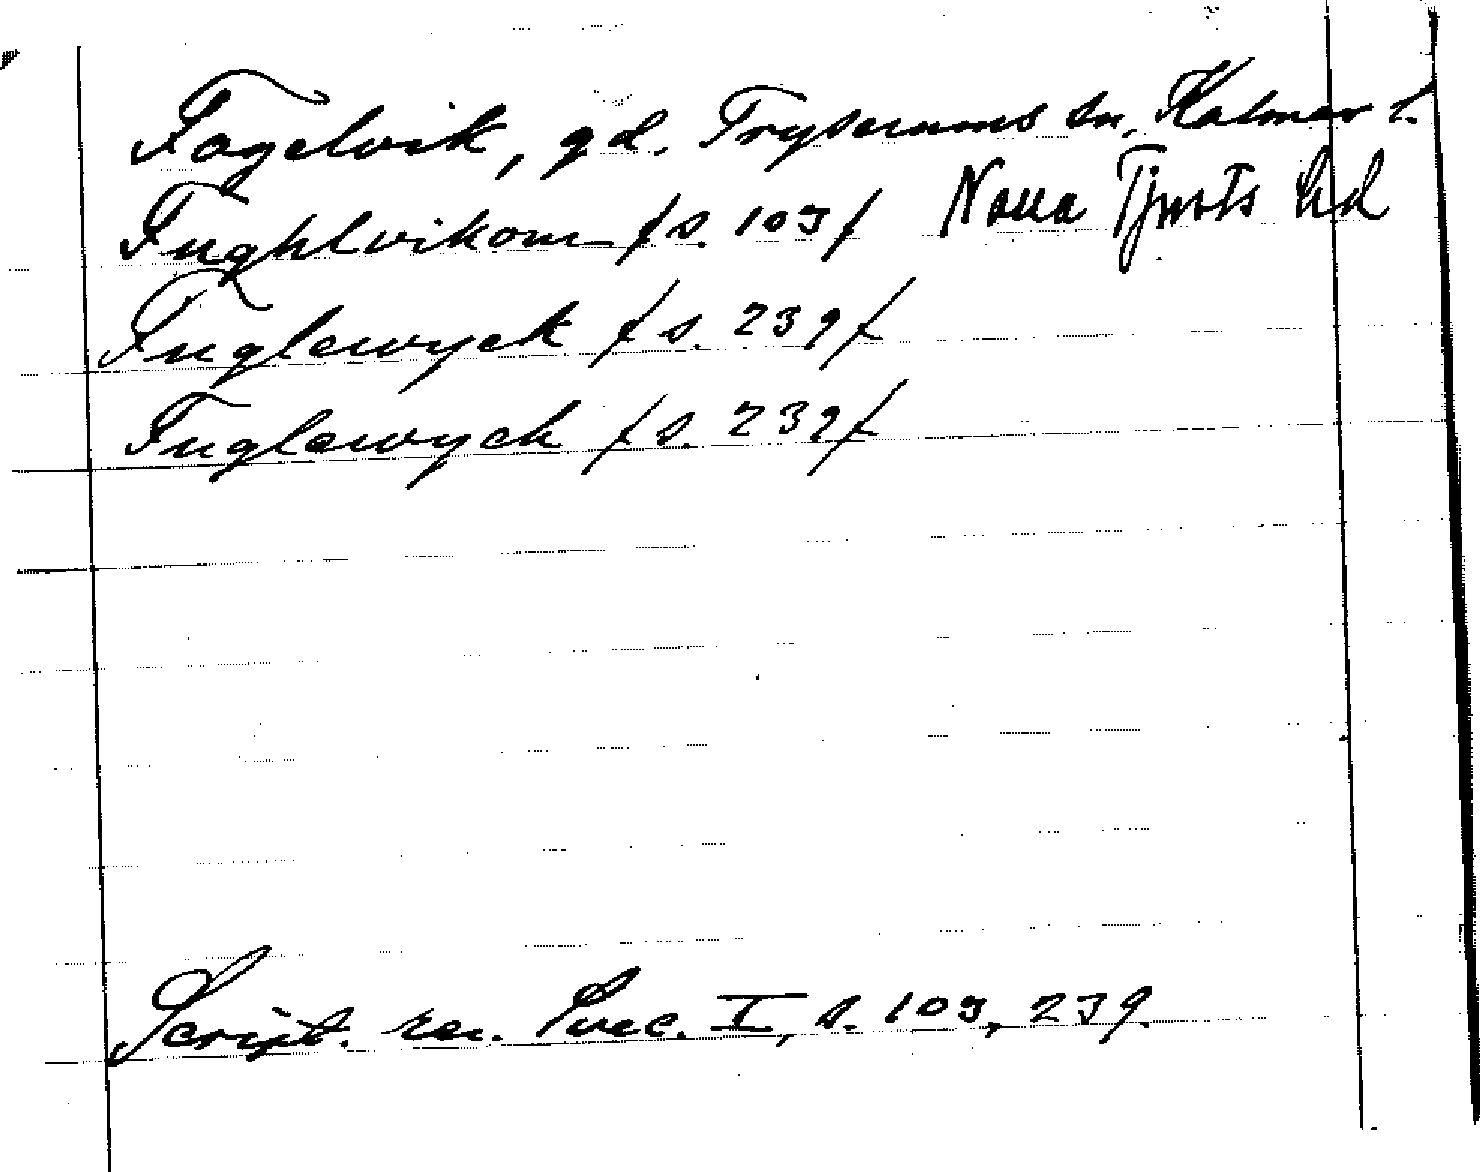 Fogelvik, gd. Tryserums sn, Kalmar l.
Fughlvikom /s. 103/ Norra Tjusts hd
Fuglewyck /s. 239/
Fuglewyck /s. 239/
Script. rer. Svec. I, s. 103, 239.